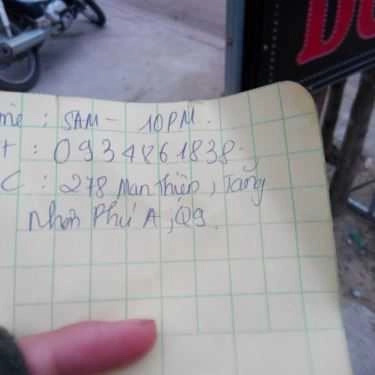 me : 5AM - 10PM.
+ : 0934861838.
C : 278 Man Thiện, Tăng
Nhơn Phú A, Q9.